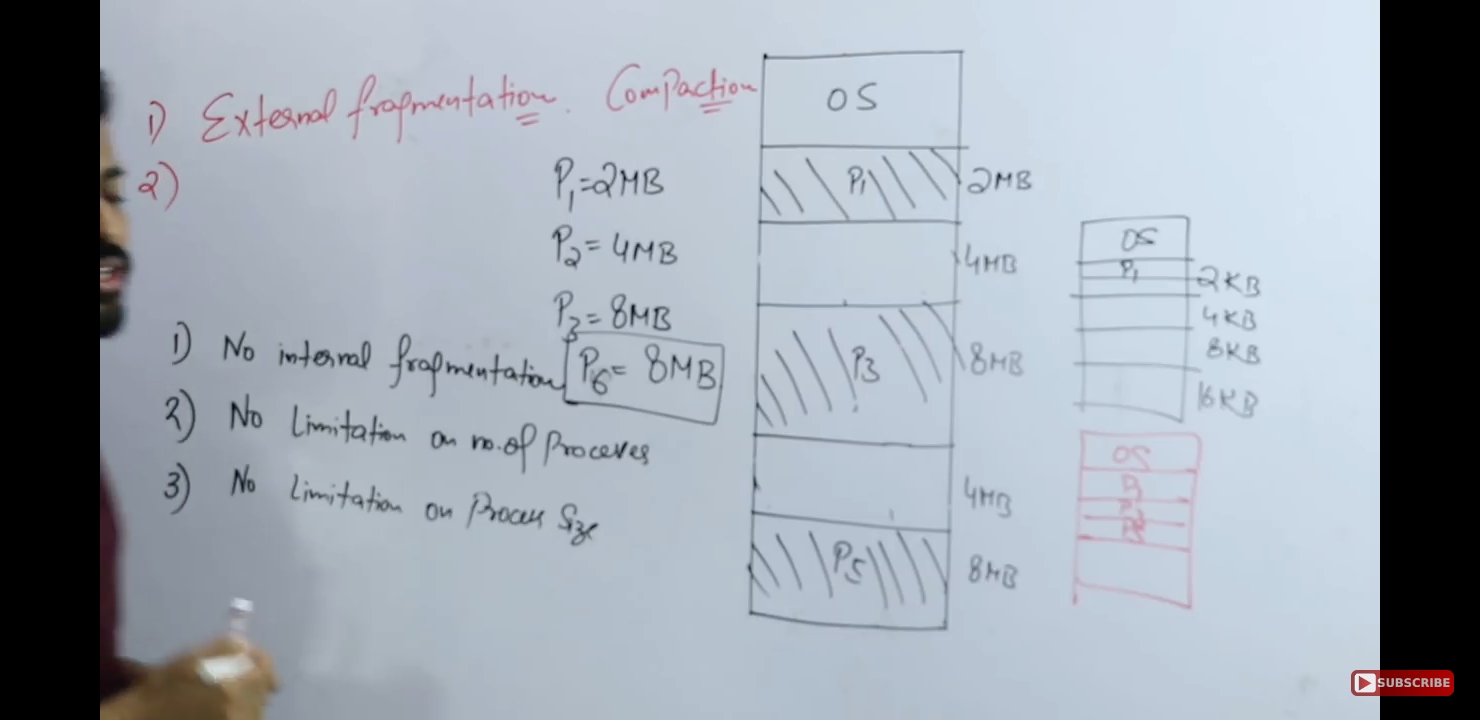 1) External fragmentation. Compaction
2)
P1=2MB
P2=4MB
P3=8MB
P6=8MB
1) No internal fragmentation
2) No Limitation on no. of Processes
3) No Limitation on Process Size
OS
P1 2MB
4MB
P3 8MB
4MB
P5 8MB
OS
P1 2KB
4KB
8KB
16KB
OS
SUBSCRIBE